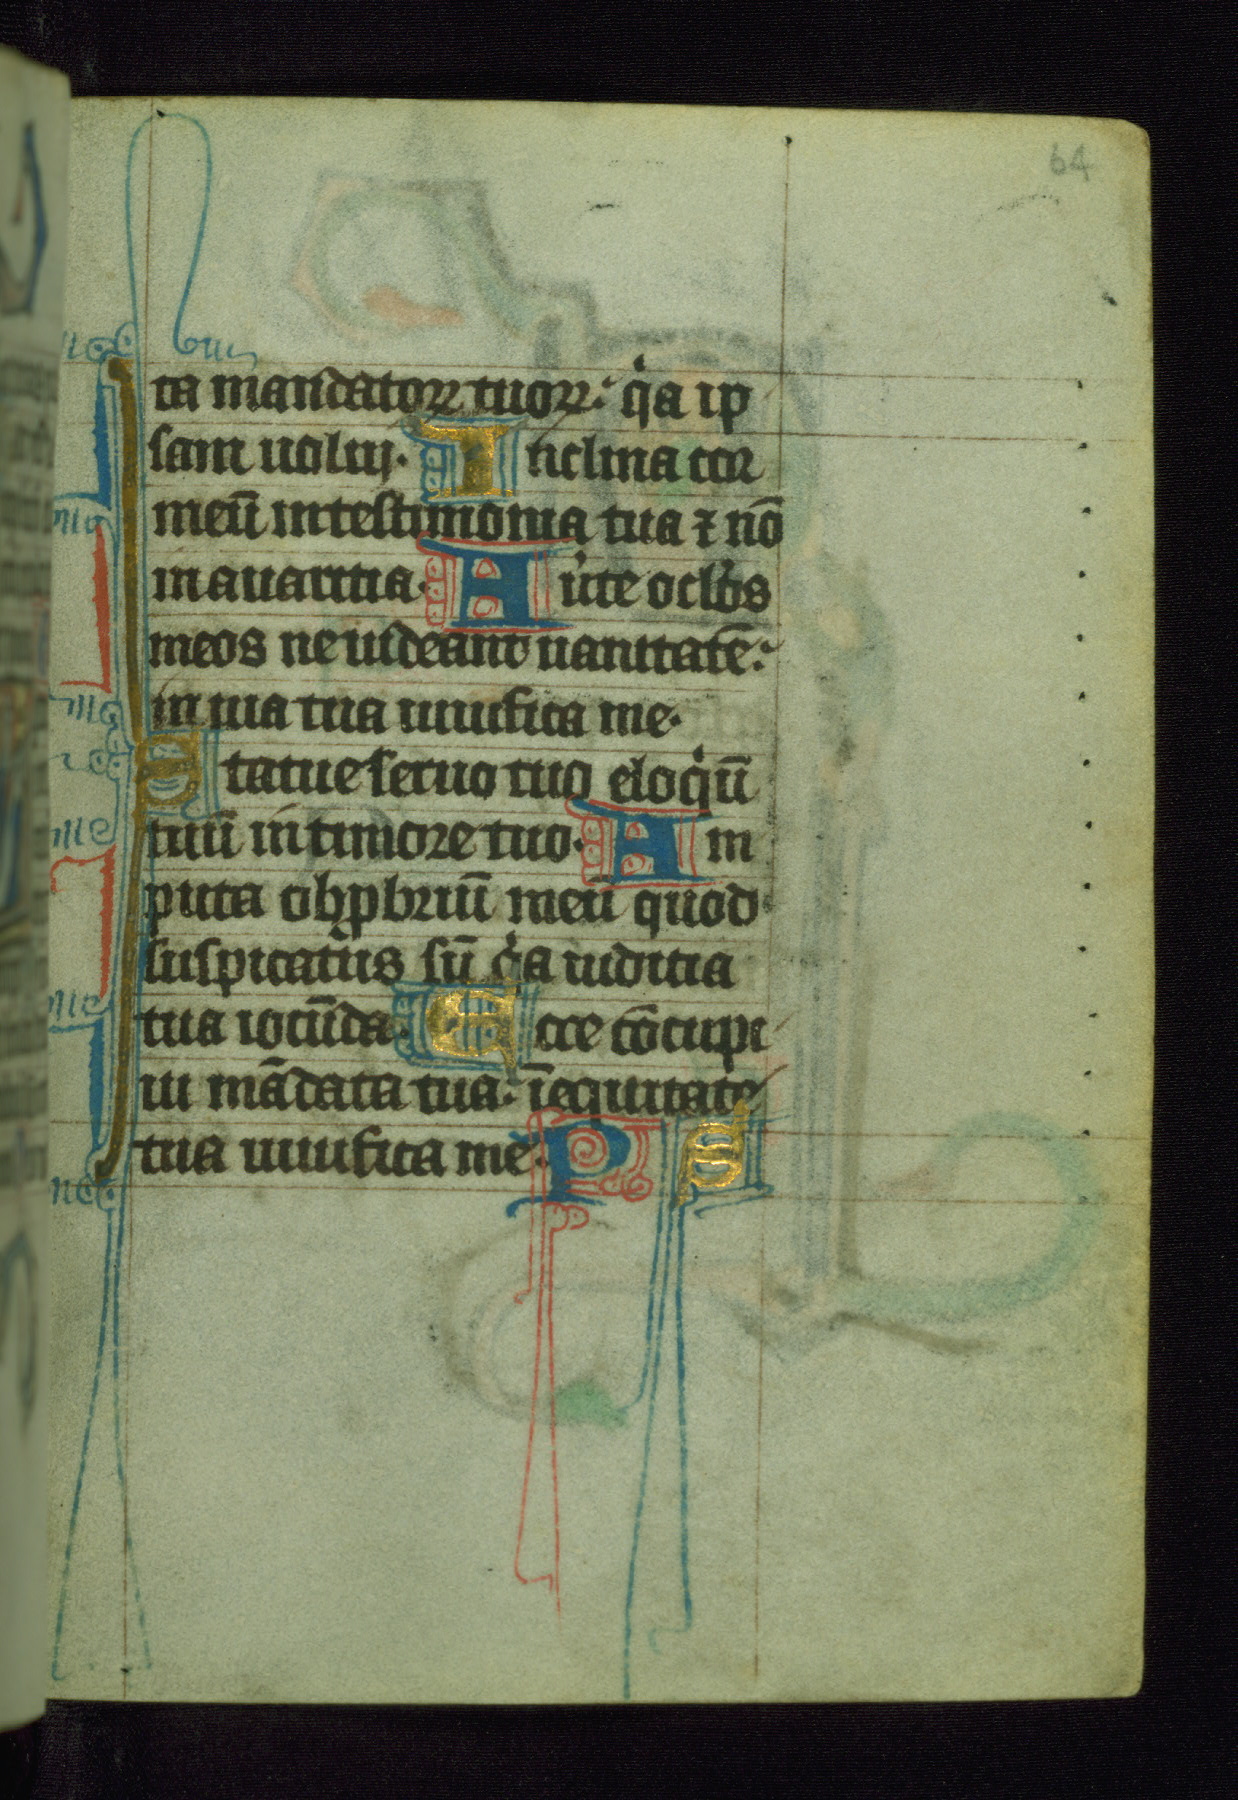 64
ta mandatoꝝ tuoꝝ· qͥa ip
sam uolui· Inclina cor
meū in testimonia tua ⁊ nō
in auaritia· Aủte oclos
meos ne uideant uanitatē·
in uia tua uiuifica me·
Statue seruo tuo eloqͥū
tuū in timore tuo· Am
puta obꝓbriū meū quod
suspicatus sū qͥa iuditia
tua iocūda· Ecce cōcupi
ui mādata tua· ī equitate
tua uiuifica me· P S